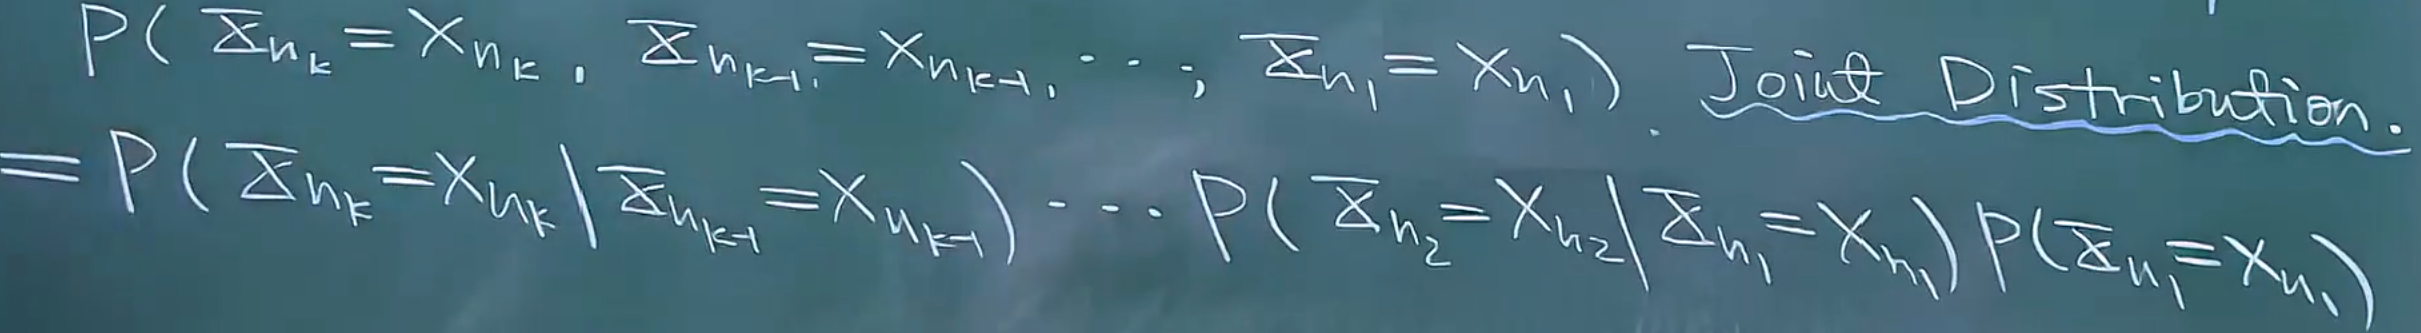 P( X̄_{n_k} = X_{n_k}, X̄_{n_{k-1}} = X_{n_{k-1}}, ⋯, X̄_{n_1} = X_{n_1} ). Joint Distribution.
= P( X̄_{n_k} = X_{n_k} | X̄_{n_{k-1}} = X_{n_{k-1}} ) ⋯ P( X̄_{n_2} = X_{n_2} | X̄_{n_1} = X_{n_1} ) P( X̄_{n_1} = X_{n_1} )